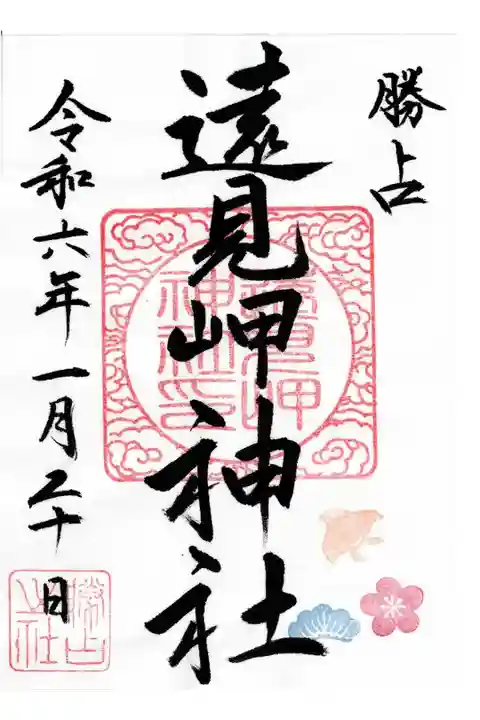 勝占
遠見岬神社
遠見岬
神社印
令和六年一月二十日
勝占